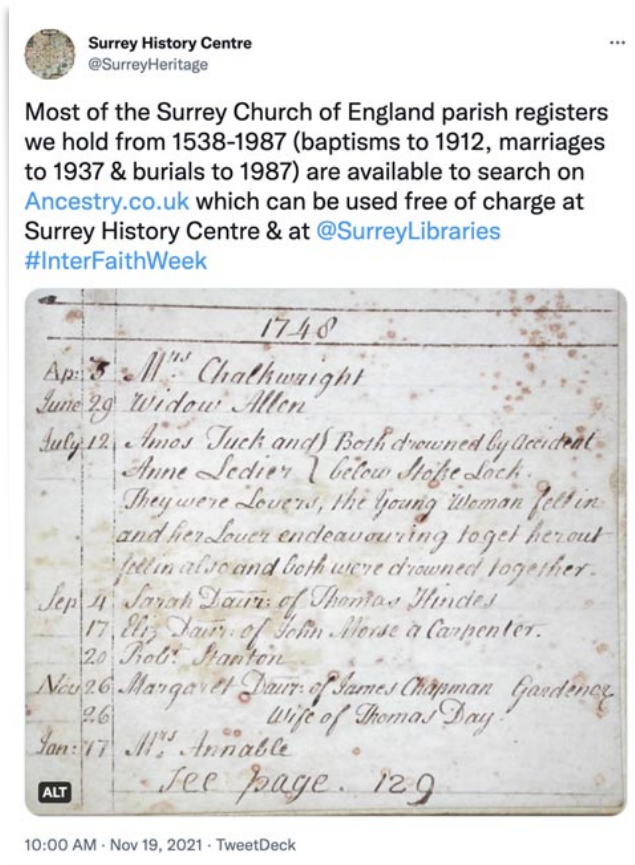 Surrey History Centre
@SurreyHeritage
Most of the Surrey Church of England parish registers
we hold from 1538-1987 (baptisms to 1912, marriages
to 1937 & burials to 1987) are available to search on
Ancestry.co.uk which can be used free of charge at
Surrey History Centre & at @SurreyLibraries
#InterFaithWeek
1748
Ap: 3 Mrs Chalkwright
June 29 Widow Allen
July 12 Amos Tuck and } Both drowned by Accident
Anne Ledier } below Stoke Lock.
They were Lovers, the Young Woman fell in
and her Lover endeavouring to get her out
fell in also and both were drowned together.
Sep 4 Sarah Daur: of Thomas Hindes
17 Eliz Daur: of John Morse a Carpenter.
20 Robt. Stanton
Nov 26 Margaret Daur: of James Chapman Gardener
26 Wife of Thomas Day.
Jan: 17 Mrs Annable
See page. 129
ALT
10:00 AM · Nov 19, 2021 · TweetDeck